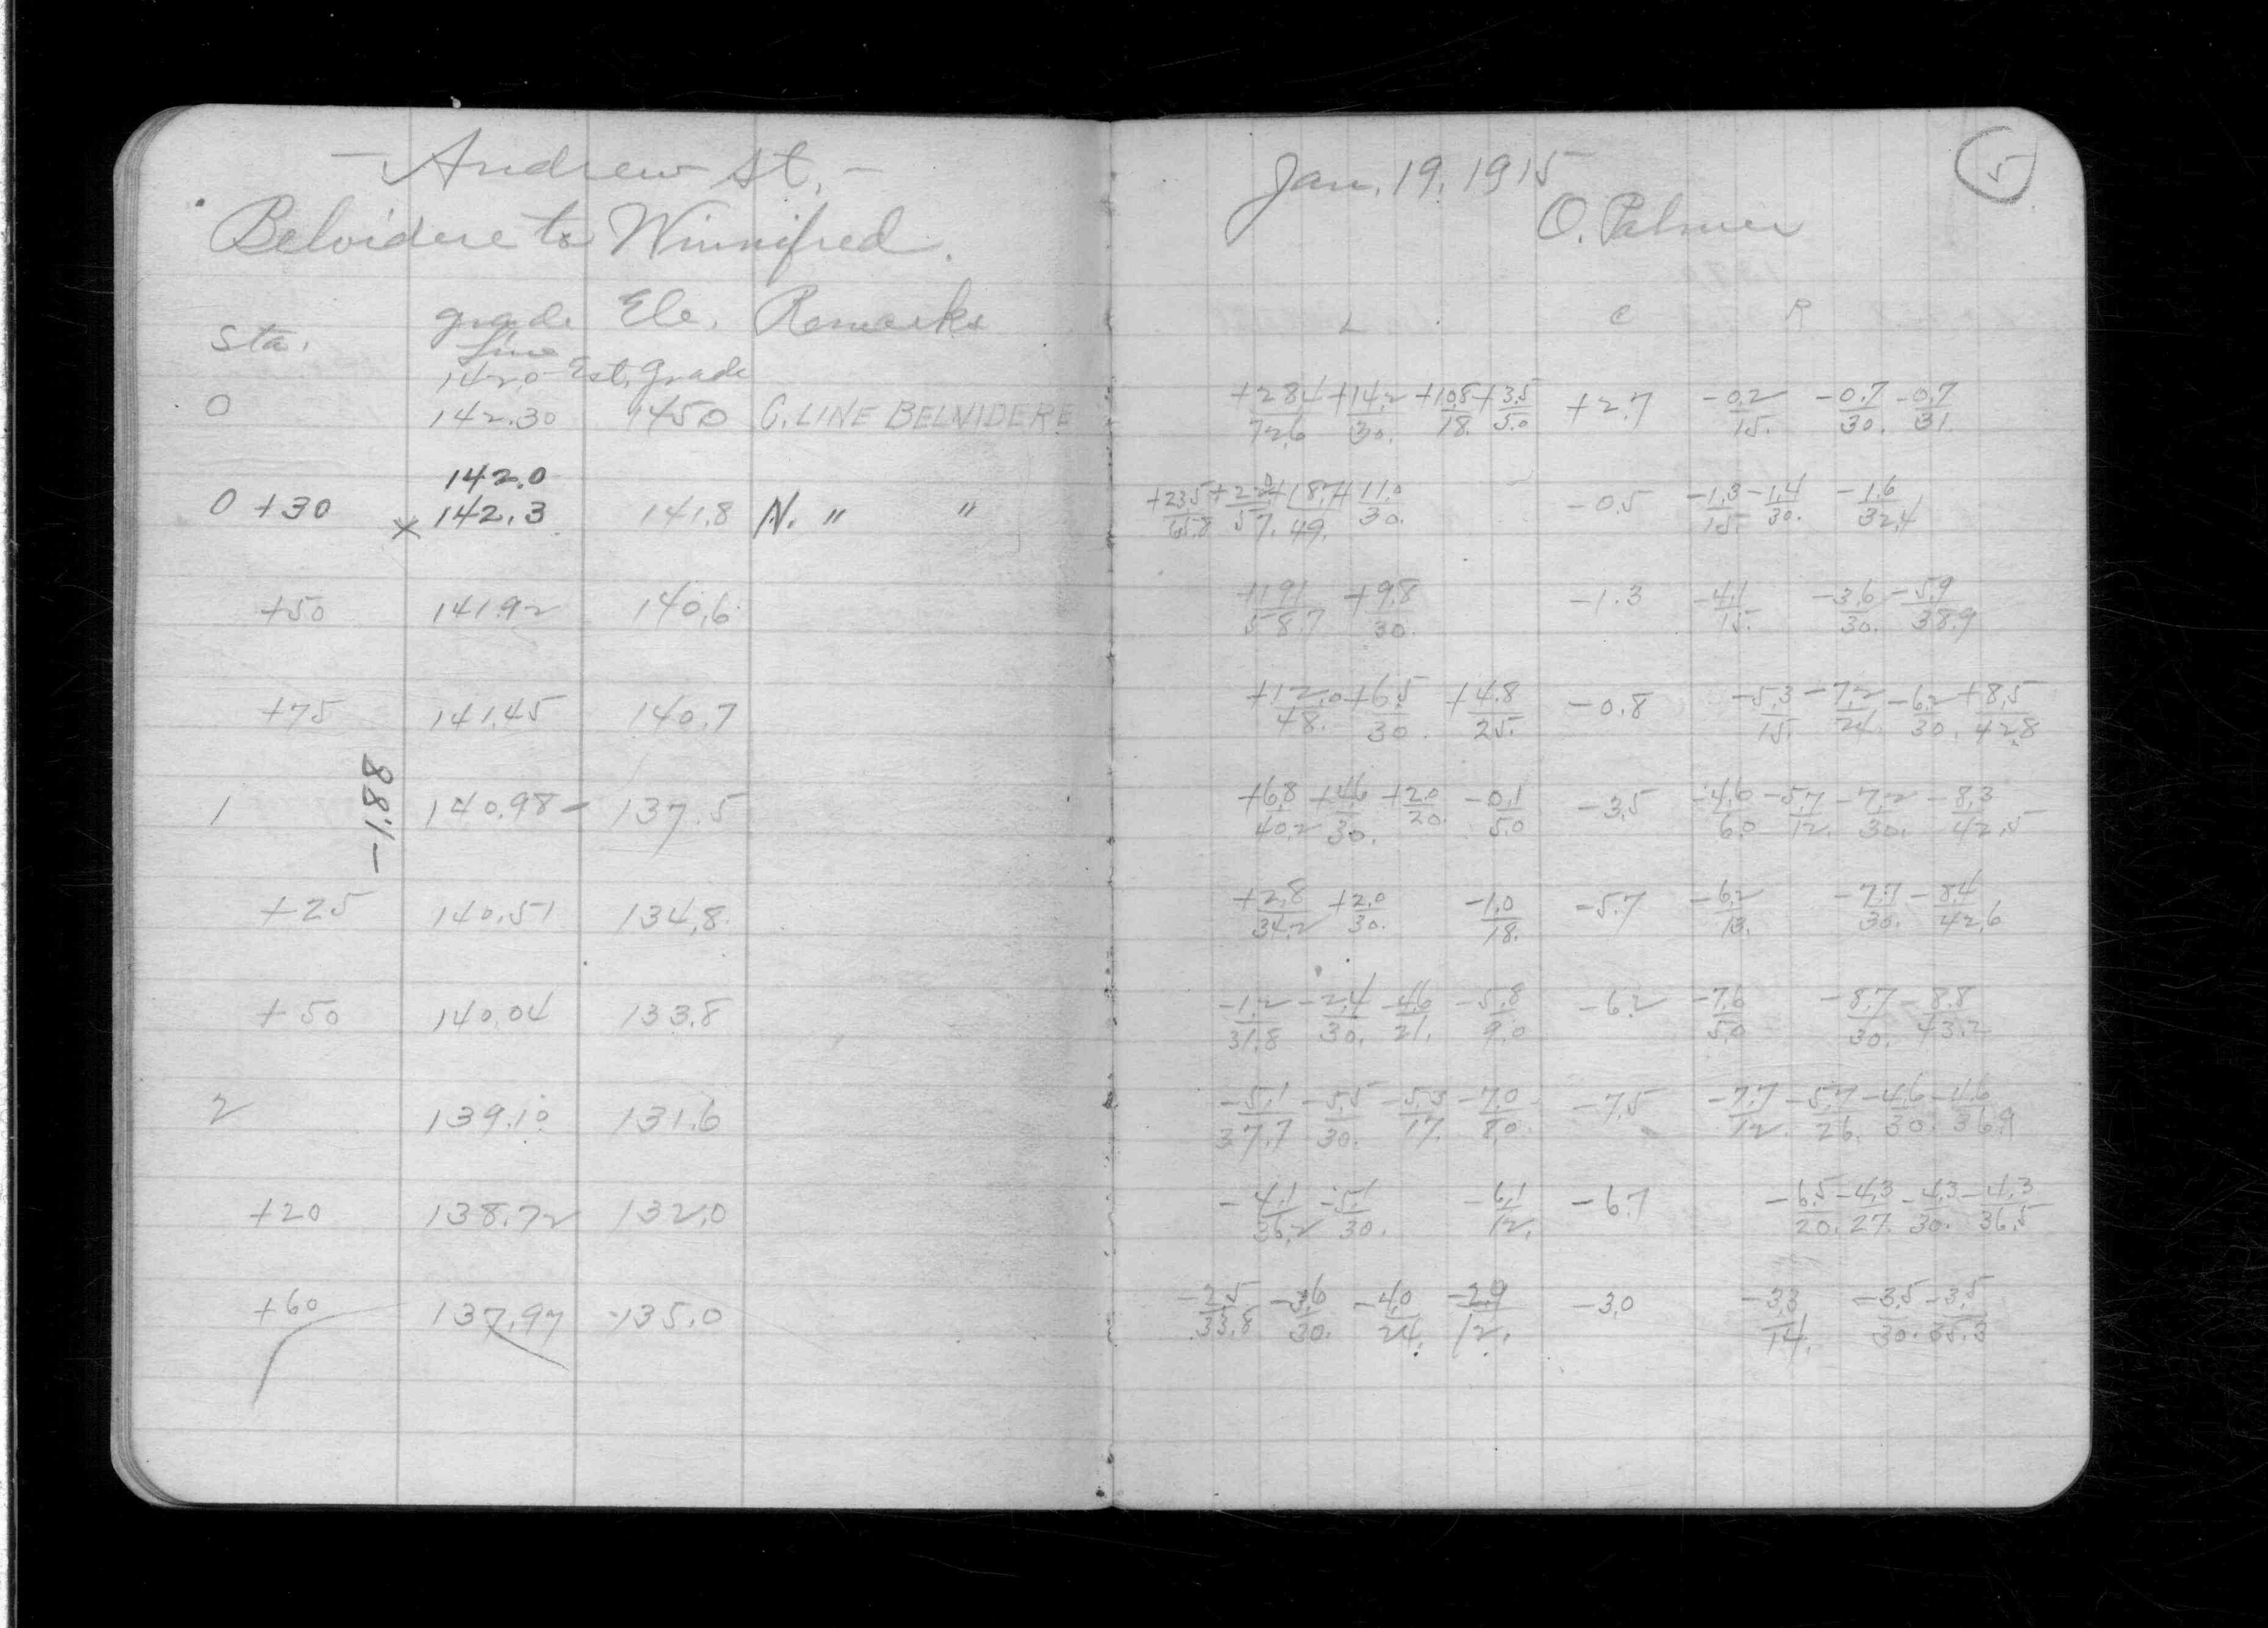 - Andrew St. -
Belvidere to Winnifred.
Sta. grade Line Ele. Remarks
142.0 Est. Grade
0 142.30 145.0 C. LINE BELVIDERE
142.0
0 +30 x 142.3 141.8 N. " "
+50 141.92 140.6
+75 141.45 140.7
-1.88
1 140.98 - 137.5
+25 140.51 134.8
+50 140.04 133.8
2 139.10 131.6
+20 138.72 132.0
+60 137.97 135.0
Jan. 19, 1915 5
O. Palmer
L C R
+28.4 +14.2 +10.8 +3.5 +2.7 -0.2 -0.7 -0.7
72.6 30. 18. 5.0 15. 30. 31.
+23.5 +22.0 +18.7 +11.0 -0.5 -1.3 -1.4 -1.6
65.8 57. 49. 30. 15. 30. 32.4
+19.1 +9.8 -1.3 -4.1 -3.6 -5.9
58.7 30. 15. 30. 38.9
+12.0 +6.5 +4.8 -0.8 -5.3 -7.2 -6.2 +8.5
48. 30. 25. 15. 24. 30. 42.8
+6.8 +4.6 +2.0 -0.1 -3.5 -4.6 -5.7 -7.2 -8.3
40.2 30. 20. 5.0 6.0 12. 30. 42.5
+2.8 +2.0 -1.0 -5.7 -6.2 -7.7 -8.4
34.2 30. 18. 13. 30. 42.6
-1.2 -2.4 -4.6 -5.8 -6.2 -7.6 -8.7 -8.8
31.8 30. 21. 9.0 5.0 30. 43.2
-5.1 -5.5 -5.3 -7.0 -7.5 -7.7 -5.7 -4.6 -4.6
37.7 30. 17. 8.0 12. 26. 30. 36.9
-4.1 -5.1 -6.1 -6.7 -6.5 -4.3 -4.3 -4.3
36.2 30. 12. 20. 27. 30. 36.5
-2.5 -3.6 -4.0 -2.9 -3.0 -3.3 -3.5 -3.5
33.8 30. 24. 12. 14. 30. 35.3